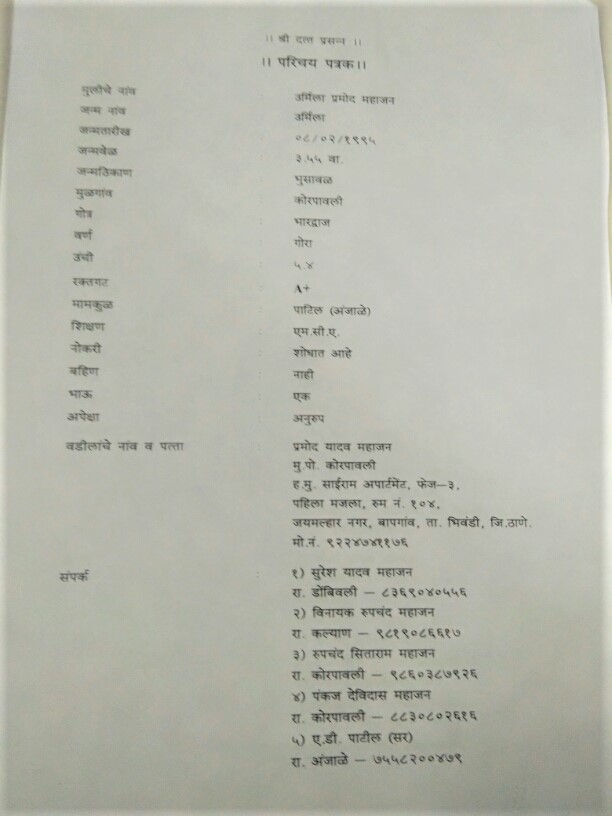 ।। श्री दत्त प्रसन्न ।।
।। परिचय पत्रक।।
मुलीचे नांव : उर्मिला प्रमोद महाजन
जन्म नांव : उर्मिला
जन्मतारीख : ०८/०२/१९९५
जन्मवेळ : ३.५५ वा.
जन्मठिकाण : भुसावळ
मुळगांव : कोरपावली
गोत्र : भारद्वाज
वर्ण : गोरा
उंची : ५.४
रक्तगट : A+
मामकुळ : पाटिल (अंजाळे)
शिक्षण : एम.सी.ए.
नोकरी : शोधात आहे
बहिण : नाही
भाऊ : एक
अपेक्षा : अनुरुप
वडीलांचे नांव व पत्ता : प्रमोद यादव महाजन
मु.पो. कोरपावली
ह.मु. साईराम अपार्टमेंट, फेज–३,
पहिला मजला, रुम नं. १०४,
जयमल्हार नगर, बापगांव, ता. भिवंडी, जि.ठाणे.
मो.नं. ९२२४७४११७६
संपर्क : १) सुरेश यादव महाजन
रा. डोंबिवली – ८३६९०४०५५६
२) विनायक रुपचंद महाजन
रा. कल्याण – ९८१९०८६६१७
३) रुपचंद सिताराम महाजन
रा. कोरपावली – ९८६०३८७९२६
४) पंकज देविदास महाजन
रा. कोरपावली – ८८३०८०२६१६
५) ए.डी. पाटील (सर)
रा. अंजाळे – ७५५८२००४७९